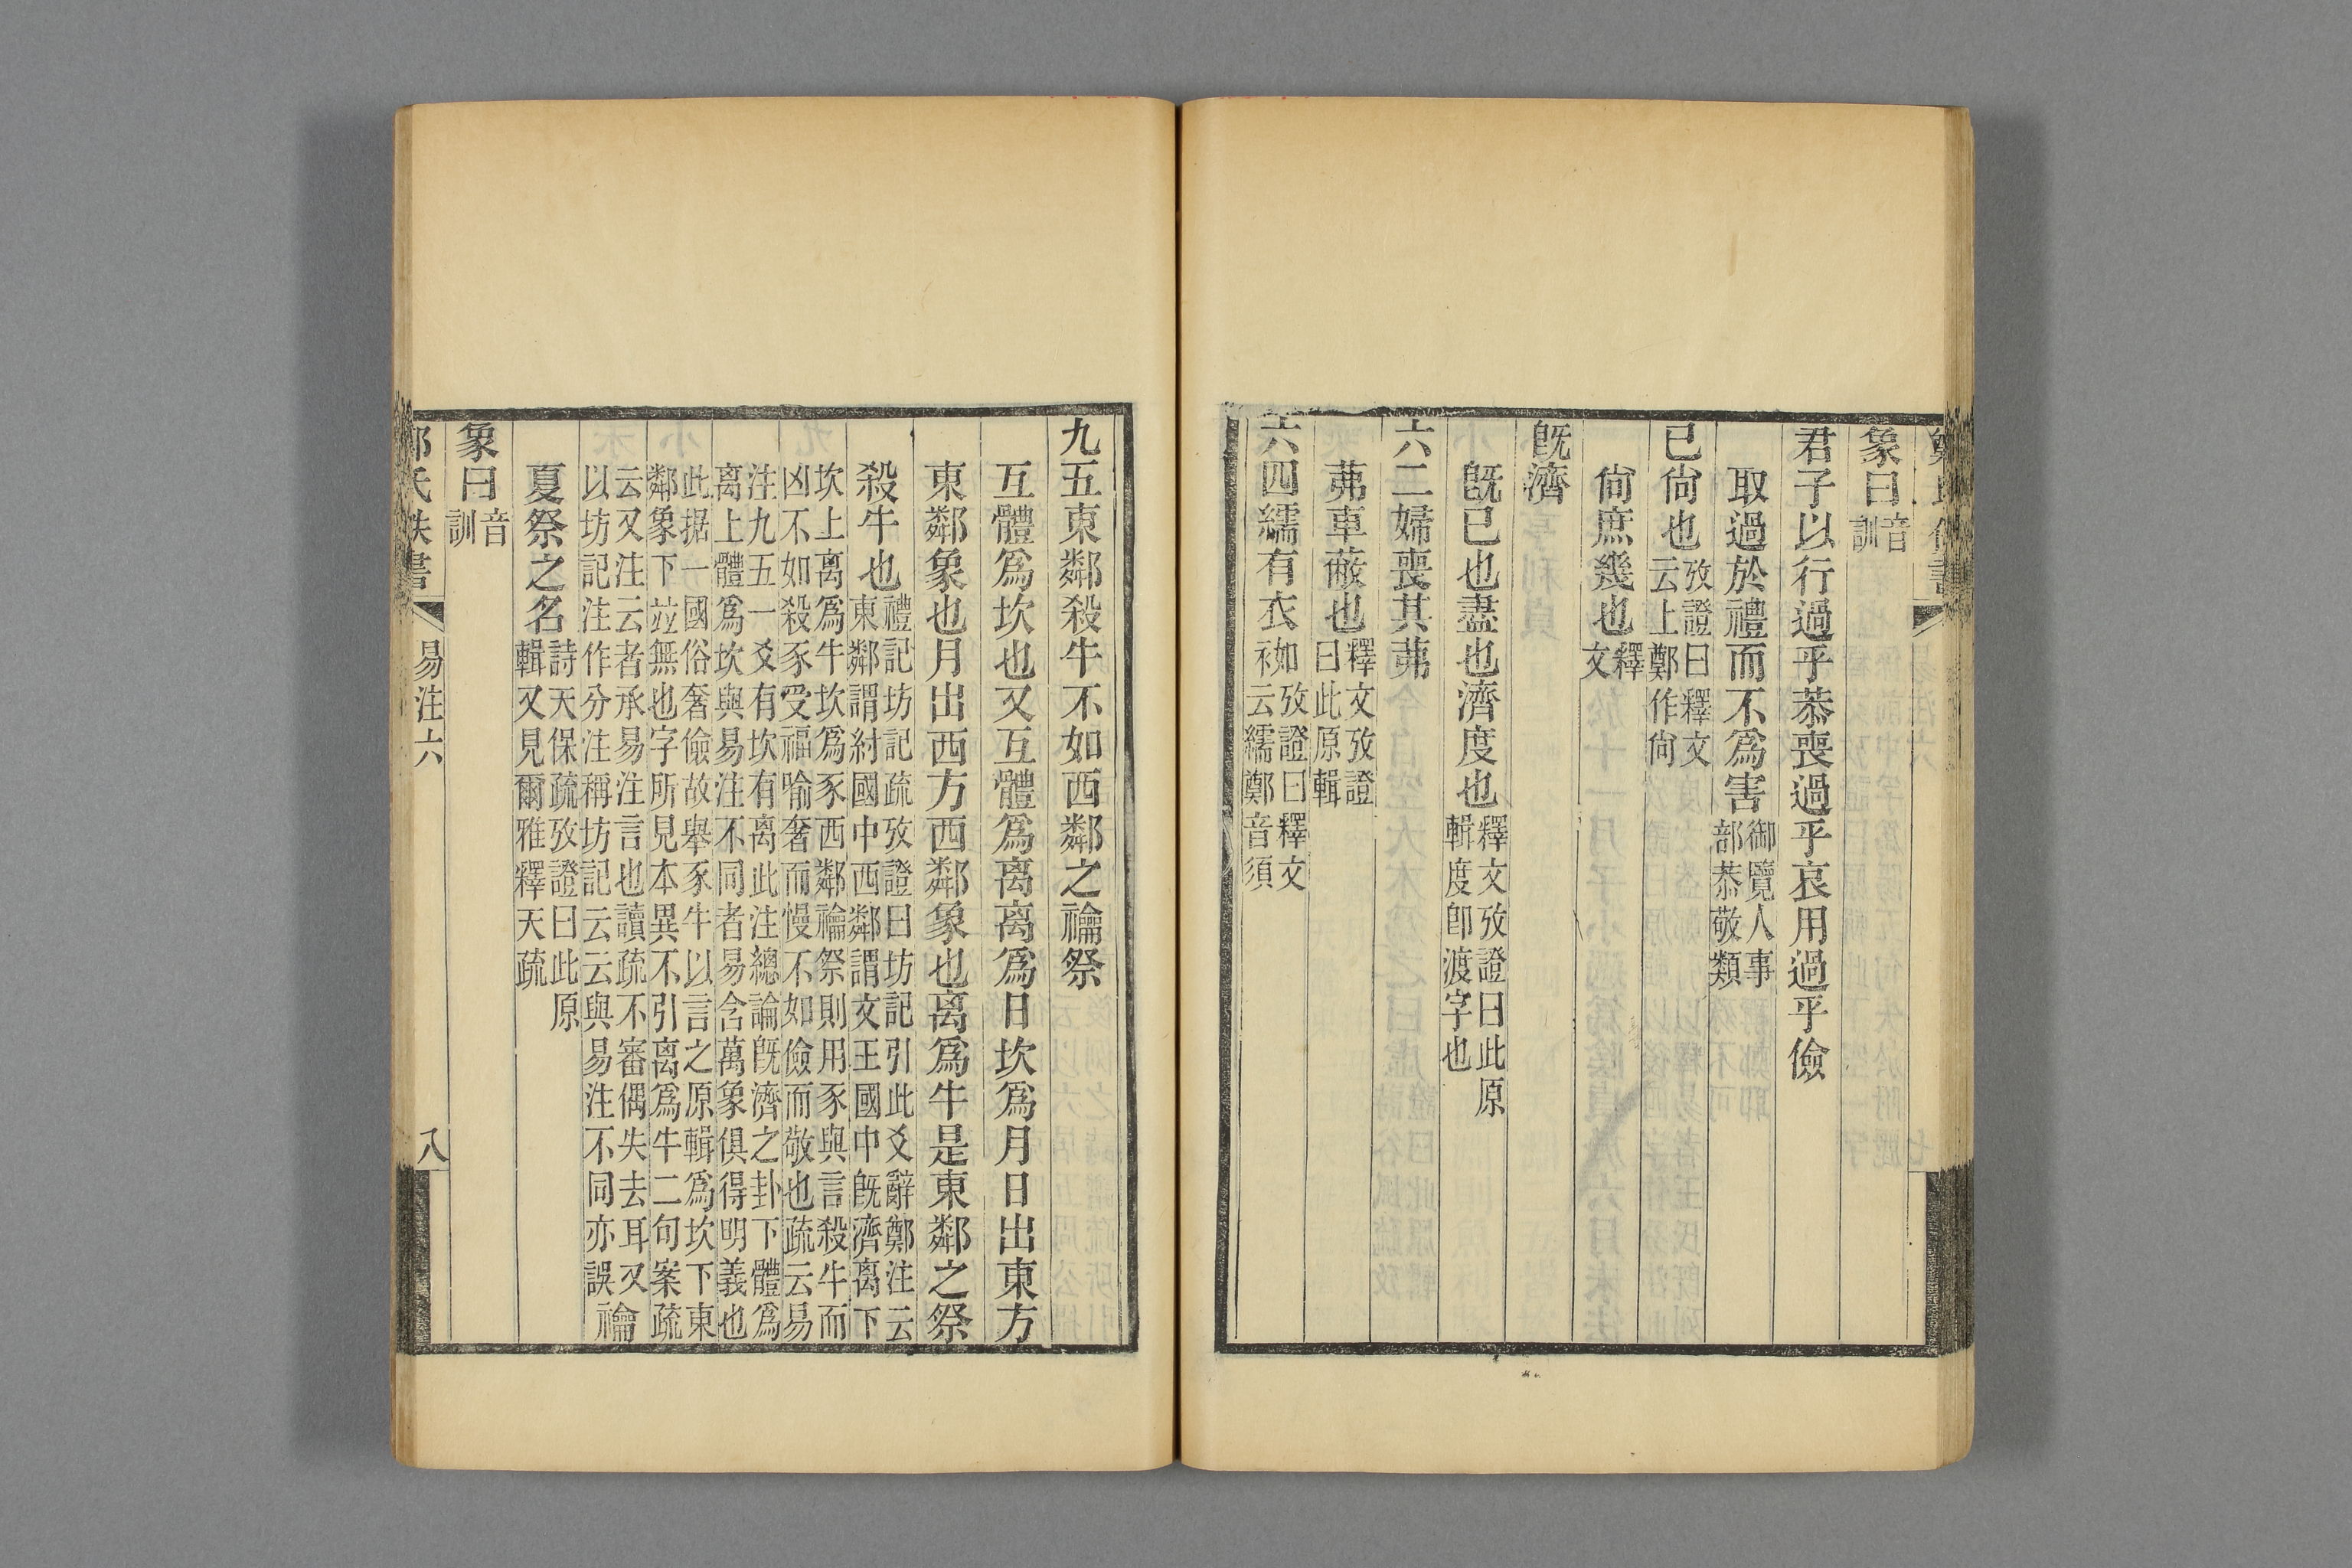 象曰音訓
君子以行過乎恭喪過乎哀用過乎儉
取過於禮而不爲害御覽人事部恭敬類
已尙也攷證曰釋文云上鄭作尙
尙庶幾也釋文
旣濟
旣已也盡也濟度也釋文攷證曰此原輯度卽渡字也
六二婦喪其茀
茀車蔽也釋文攷證曰此原輯
六四繻有衣袽攷證曰釋文云繻鄭音須
九五東鄰殺牛不如西鄰之禴祭
互體爲坎也又互體爲离离爲日坎爲月日出東方
東鄰象也月出西方西鄰象也离爲牛是東鄰之祭
殺牛也禮記坊記疏攷證曰坊記引此爻辭鄭注云東鄰謂紂國中西鄰謂文王國中旣濟离下
坎上离爲牛坎爲豕西鄰禴祭則用豕與言殺牛而凶不如殺豕受福喻奢而慢不如儉而敬也疏云易
注九五一爻有坎有离此注總論旣濟之卦下體爲离上體爲坎與易注不同者易含萬象俱得明義也
此据一國俗奢儉故舉豕牛以言之原輯爲坎下東鄰象下並無也字所見本異不引离爲牛二句案疏
云又注云者承易注言也讀疏不審偶失去耳又禴以坊記注作分注稱坊記云云與易注不同亦誤
夏祭之名詩天保疏攷證曰此原輯又見爾雅釋天疏
象曰音訓
氏佚書
易注六
八